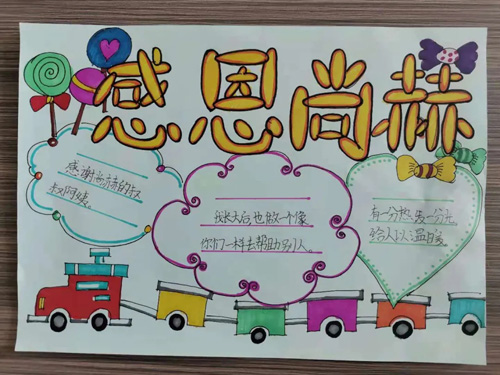 感恩尚赫
感谢尚赫的叔
叔阿姨。
我长大后也做一个像
你们一样去帮助别人。
有一分热,发一分光,
给人以温暖